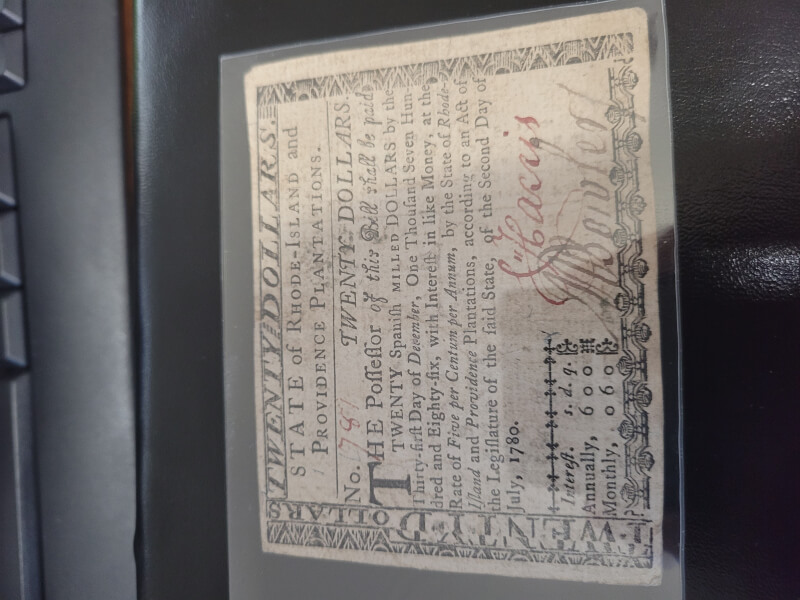 TWENTY DOLLARS.
STATE of RHODE-ISLAND and
PROVIDENCE PLANTATIONS.
No. 787 TWENTY DOLLARS.
THE Poſſeſſor of this Bill ſhall be paid
TWENTY Spaniſh MILLED DOLLARS by the
Thirty-firſt Day of December, One Thouſand Seven Hun-
dred and Eighty-ſix, with Intereſt in like Money, at the
Rate of Five per Centum per Annum, by the State of Rhode-
Iſland and Providence Plantations, according to an Act of
the Legiſlature of the ſaid State, of the Second Day of
July, 1780.
Intereſt. s. d. q.
Annually, 6 0 0
Monthly, 0 6 0
TWENTY DOLLARS